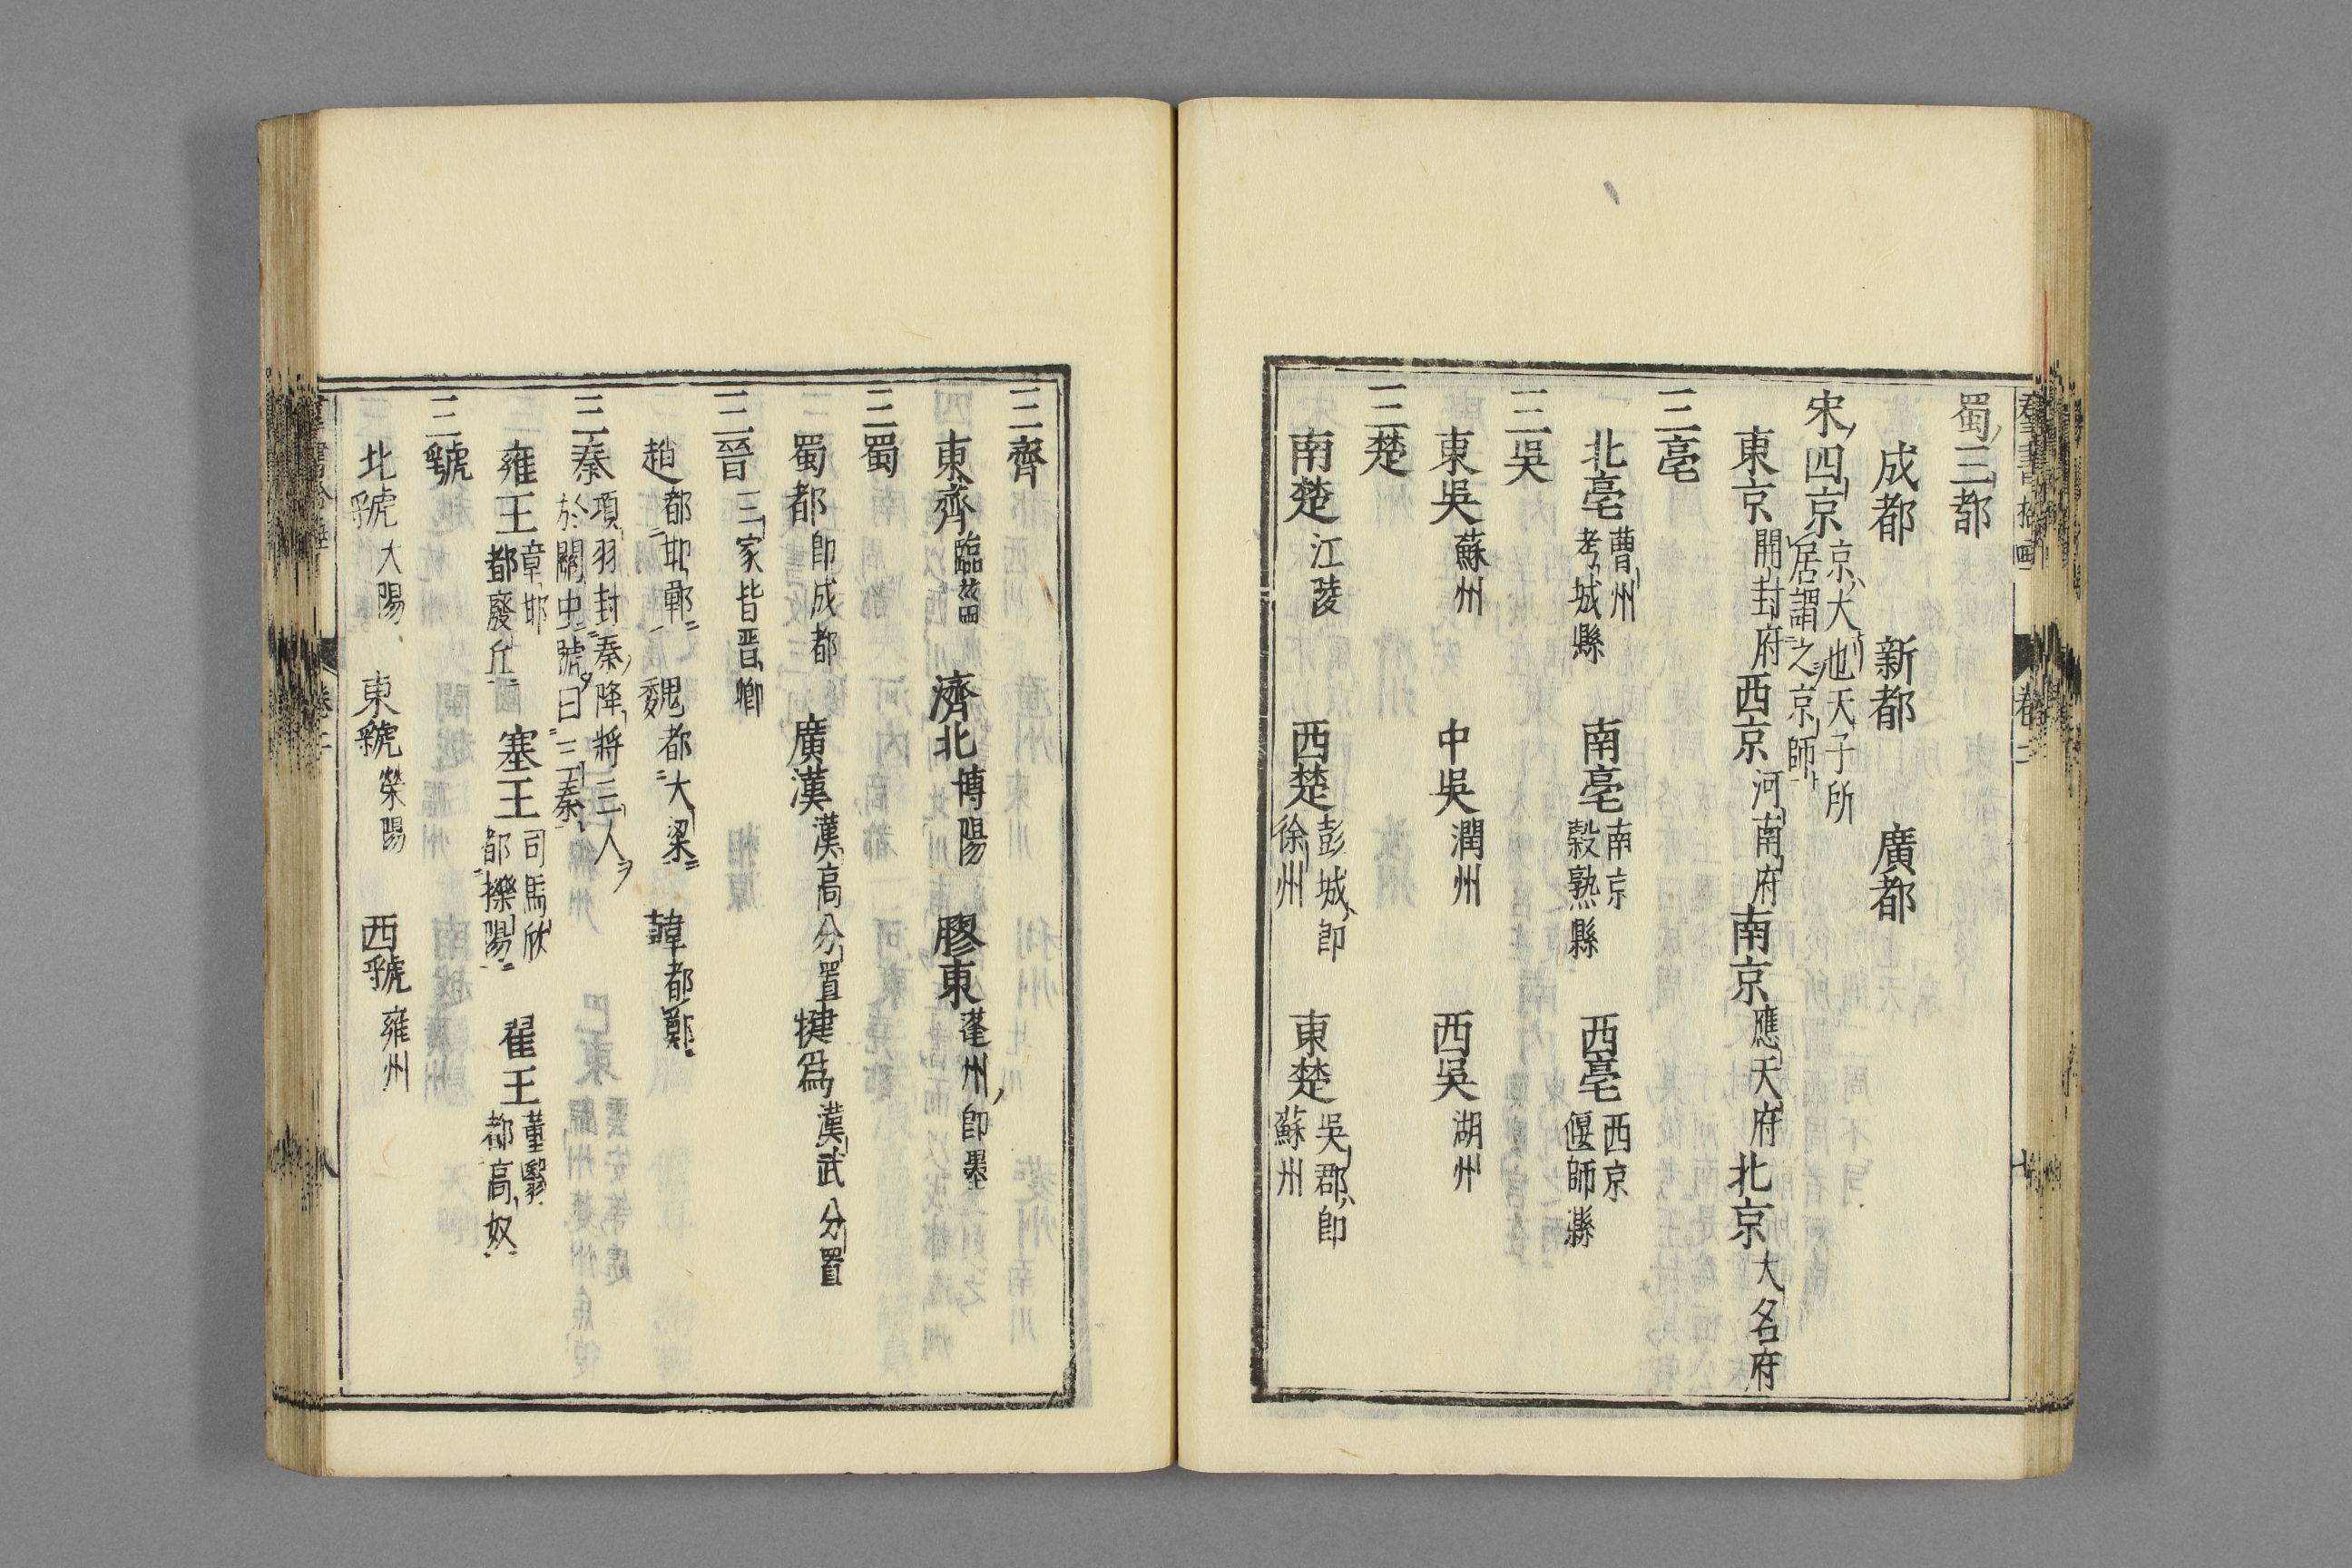 蜀三都
成都 新都 廣都
宋四京 京大也天子所
居謂之京師
東京 開封府 西京 河南府 南京 應天府 北京 大名府
三亳
北亳 曹州
考城縣 南亳 南京
穀熟縣 西亳 西京
偃師縣
三吳
東吳 蘇州 中吳 潤州 西吳 湖州
三楚
南楚 江陵 西楚 彭城即
徐州 東楚 吳郡即
蘇州
三齊
東齊 臨菑 濟北 博陽 膠東 蓬州即墨
三蜀
蜀都 即成都 廣漢 漢高分置 犍為 漢武分置
三晉 三家皆晋卿
趙 都邯鄲 魏 都大梁 韓 都鄭
三秦 項羽封秦降將三人ヲ
於關中號曰三秦
雍王 章邯
都廢丘 塞王 司馬欣
都櫟陽 翟王 董翳
都高奴
三虢
北虢 大陽 東虢 滎陽 西虢 雍州